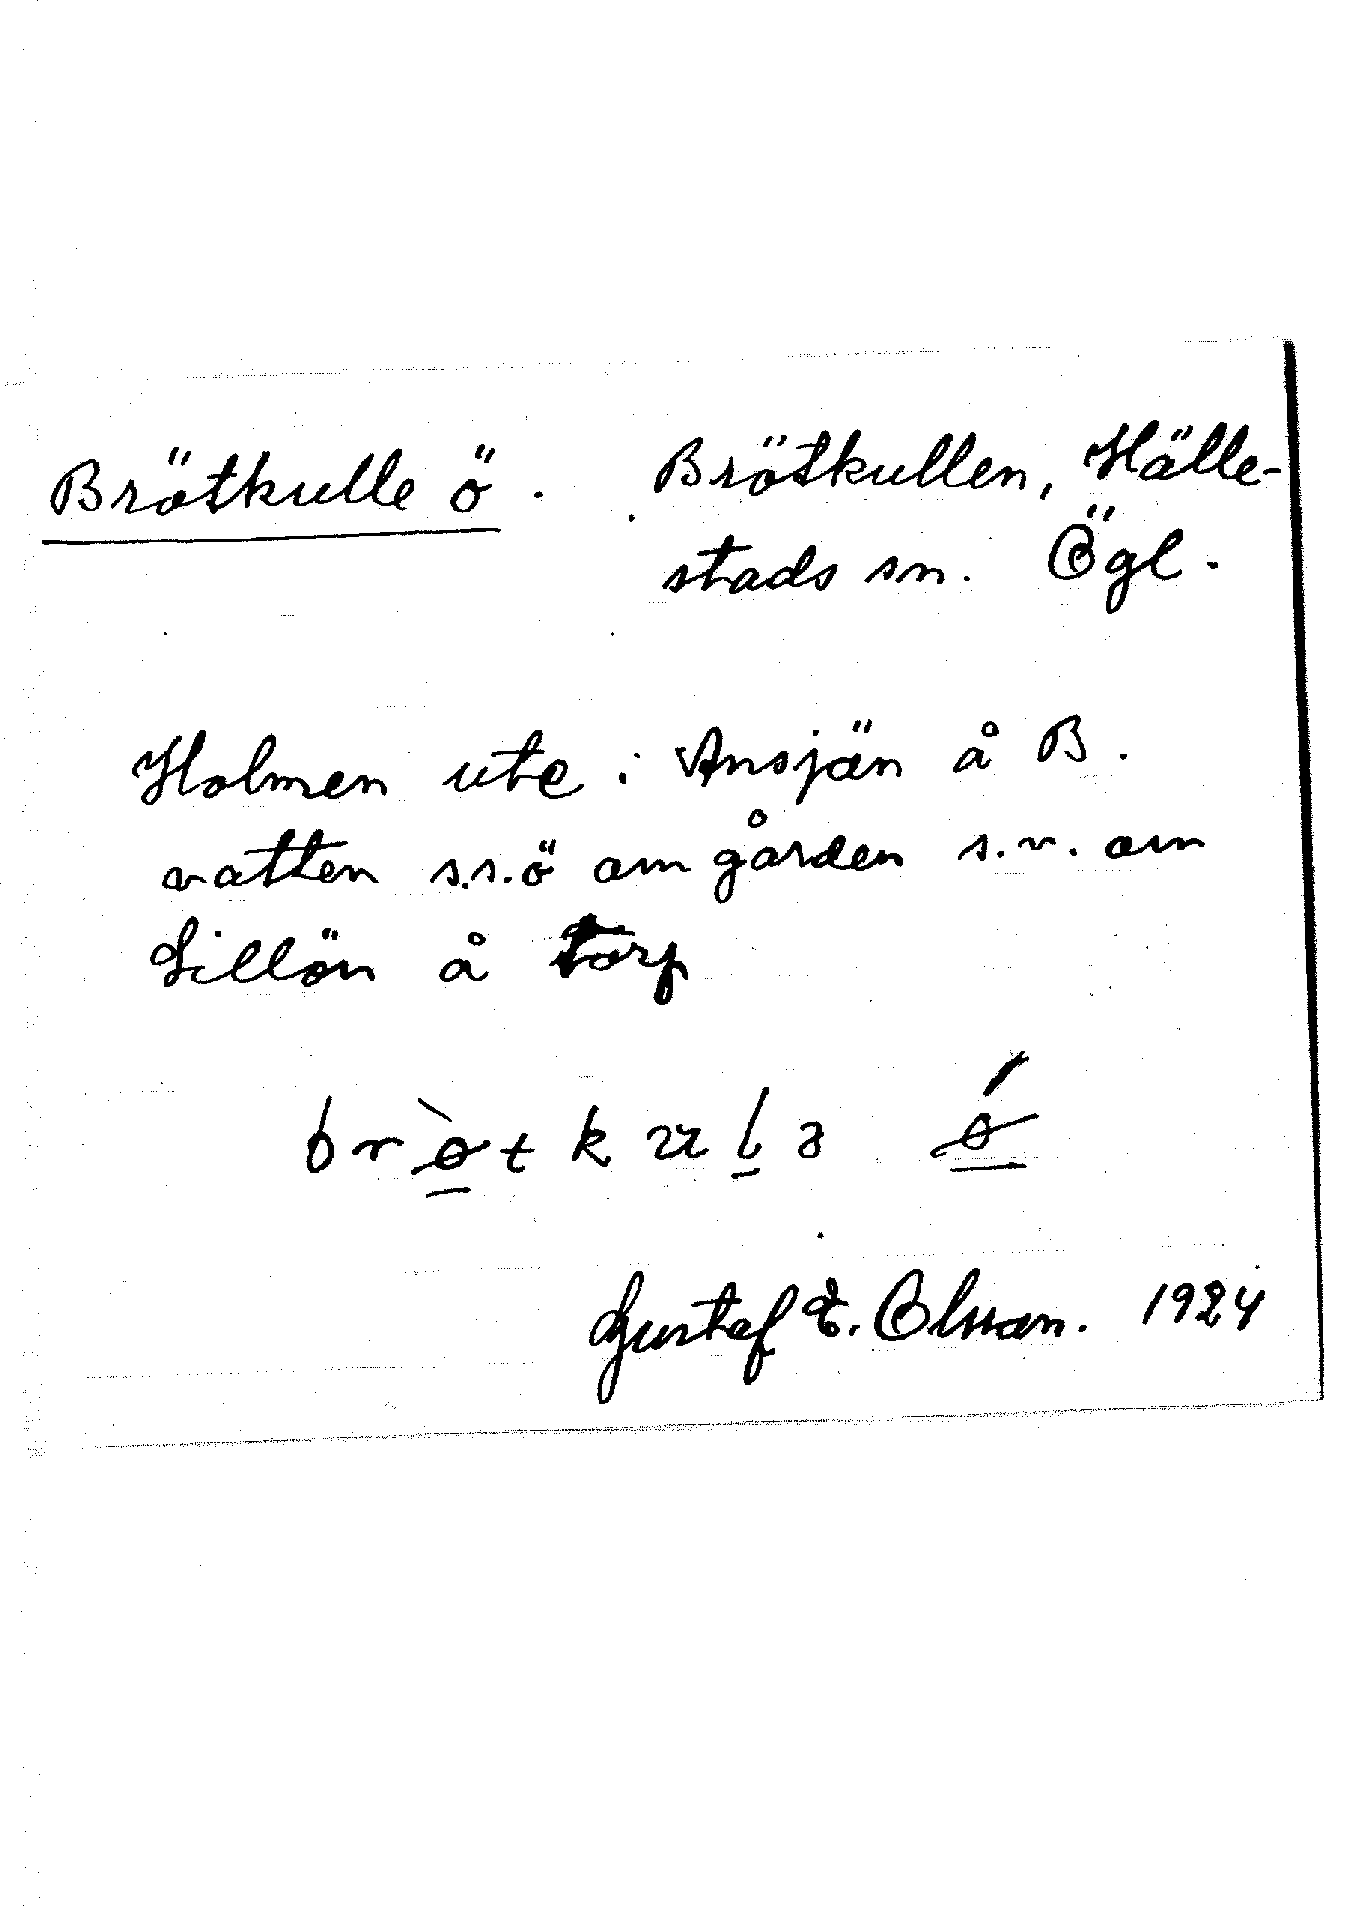 Brötkulle ö. Brötkullen, Hälle-
stads sn. Ögl.
Holmen ute i Ansjön å B.
vatten s.s.ö om gården s.v. om
Lillön å Torp
brø̀tkulə ǿ
Gustaf E. Olsson. 1924